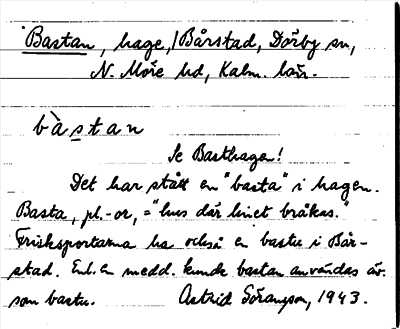 Bastan, hage, Bårstad, Dörby sn,
N. Möre hd, Kalm. län.
bàstan
Se Basthagen!
Det har stått en "basta" i hagen.
Basta, pl. -or, = "hus där linet bråkas."
Frisksportarna ha också en bastu i Bår-
stad. Enl. en medd. kunde bastan användas äv.
som bastu. Astrid Göransson, 1943.